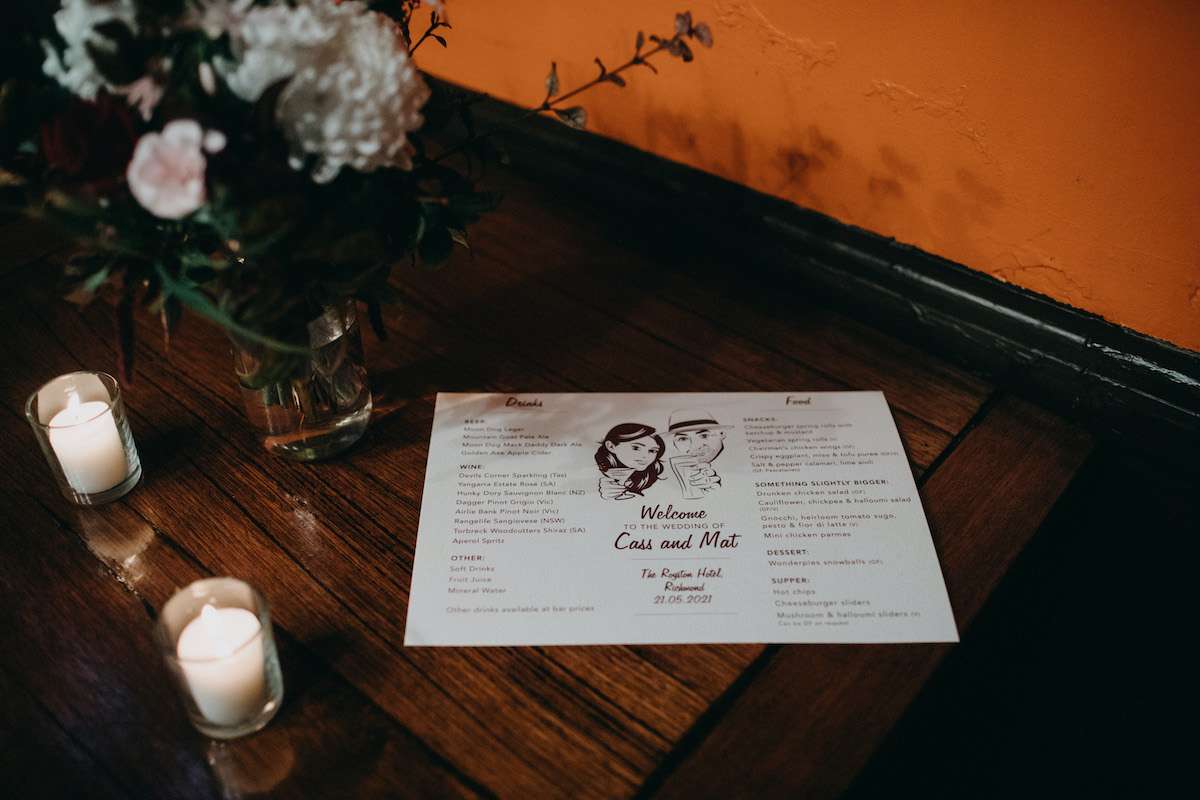 Drinks
BEER:
Moon Dog Lager
Mountain Goat Pale Ale
Moon Dog Mack Daddy Dark Ale
Golden Axe Apple Cider
WINE:
Devils Corner Sparkling (Tas)
Yangarra Estate Rosé (SA)
Hunky Dory Sauvignon Blanc (NZ)
Dagger Pinot Grigio (Vic)
Airlie Bank Pinot Noir (Vic)
Rangelife Sangiovese (NSW)
Torbreck Woodcutters Shiraz (SA)
Aperol Spritz
OTHER:
Soft Drinks
Fruit Juice
Mineral Water
Other drinks available at bar prices
Welcome
TO THE WEDDING OF
Cass and Mat
The Royston Hotel,
Richmond
21.05.2021
Food
SNACKS:
Cheeseburger spring rolls with
ketchup & mustard
Vegetarian spring rolls (V)
Chairman's chicken wings (GF)
Crispy eggplant, miso & tofu puree
Salt & pepper calamari, lime aioli
(GF, Pescatarian)
SOMETHING SLIGHTLY BIGGER:
Drunken chicken salad (GF)
Cauliflower, chickpea & halloumi salad
(GF/V)
Gnocchi, heirloom tomato sugo,
pesto & fior di latte (V)
Mini chicken parmas
DESSERT:
Wonderpies snowballs (GF)
SUPPER:
Hot chips
Cheeseburger sliders
Mushroom & halloumi sliders (V)
Can be GF on request